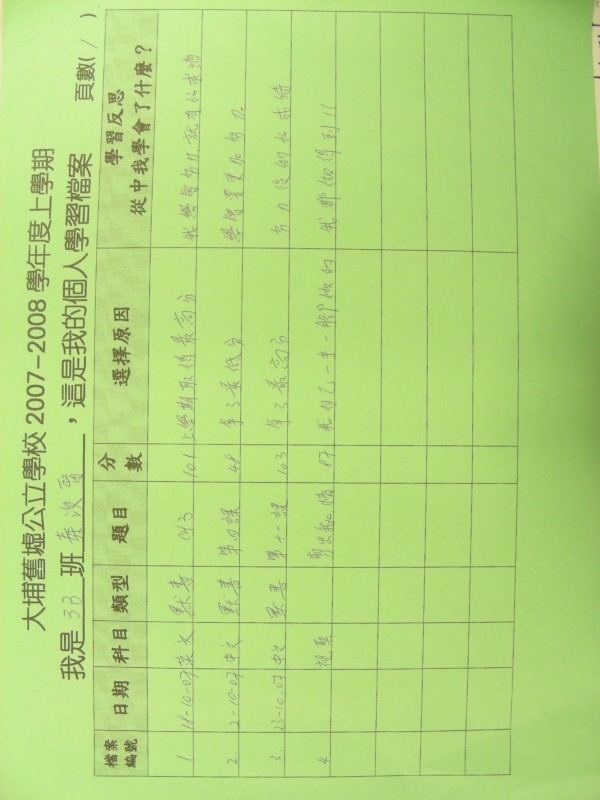 大埔舊墟公立學校 2007-2008 學年度上學期
我是 3B 班 ，這是我的個人學習檔案 頁數( 1 )
檔案編號 日期 科目 類型 題目 分數 選擇原因 學習反思 從中我學會了什麼？
1 18-10-07 英文 默書 Ch3 101 上學期取得最高分 我學習努力就有好成績
2. 2-10-07 中文 默書 第四課 48 拿了最低分 學習要更加努力
3. 23-10-07 中文 默書 第十一課 103 拿了最高分 努力後的好成績
4. 視頁 87 我自己一手一腳做的 我都做得到!!